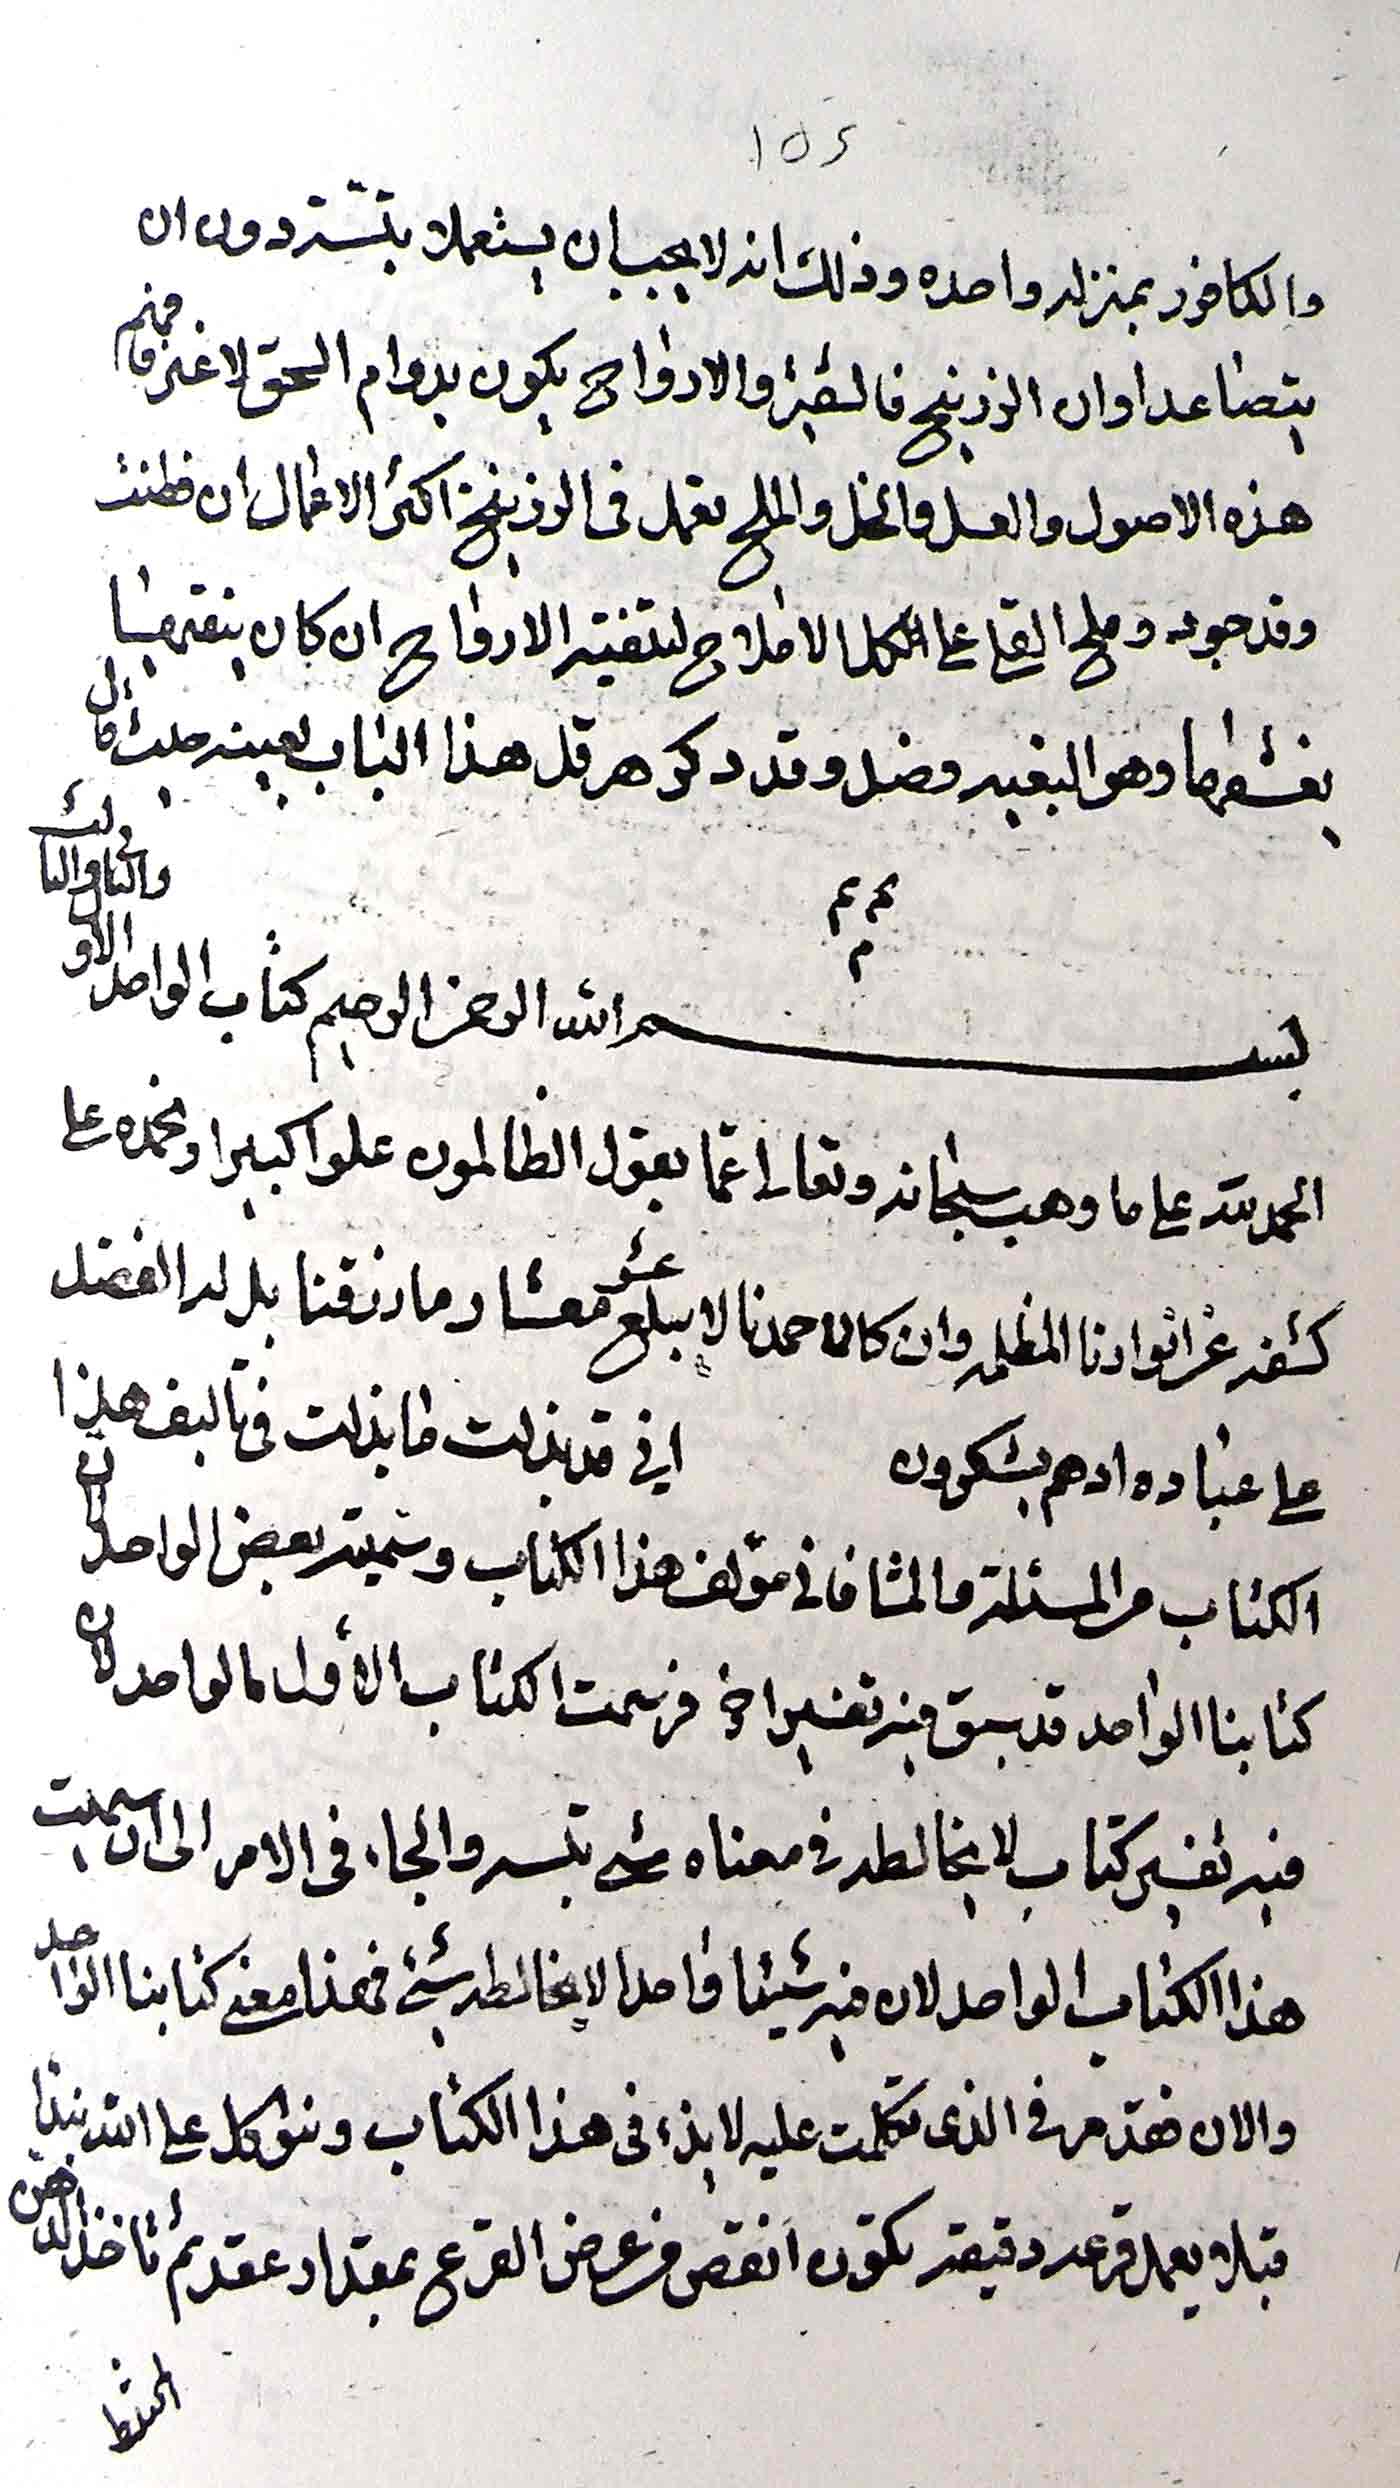 ١٥٤
والكافور بمنزله واحده وذلك انه لا يجب ان يشعملا بتستر دون ان
يتصاعدا وان الزرنيخ فالتنقيه والارواح يكون بدوام السحق لا غير فافهم
هذه الاصول والعسل والخل والملح تعمل في الزرنيخ اكثر الاعمال ان فطنت
وقد جوده وملح القلى على الكل الاملاح لتنقيه الارواح ان كان
وهو البغيه وضل وقد ذكر هرقل هذا الباب بعينه حيث قال
بسم الله الرحمن الرحيم كتاب الواحد الاول والثاني والثالث
الحمد لله على ما وهب سبحانه وتعالى عما يقول الظالمون علوا كبيرا ونحمده على
كشفه عن انوارنا المظلمه وان كان حمدنا لا يبلغ عشر معشار ما رزقنا بل له الفضل
على عباده اذهم يشكرون اني قد بذلت ما بذلت في تاليف هذا
الكتاب من المسئلة في مؤلف هذا الكتاب وسميته بعض الواحد لان
كتابنا الواحد قد سبق فيه تفسير اخر فرسمت الكتاب الأول بالواحد لان
فيه تفسير كتاب لا يخالطه في معناه شئ بتسير والجاء في الامر الى ان سميت
هذا الكتاب الواحد لان فيه شيئا واحدا لا يخالطه شئ فهذا معنى كتابنا الواحد
والان فقد مر في الذى تكلمت عليه لا بذء في هذا الكتاب ونتوكل على الله نبتدا
قبلا يعمل قرعه دقيقه تكون انقص من عرض القرع بمقدار عقد ثم تاخذ الدهن